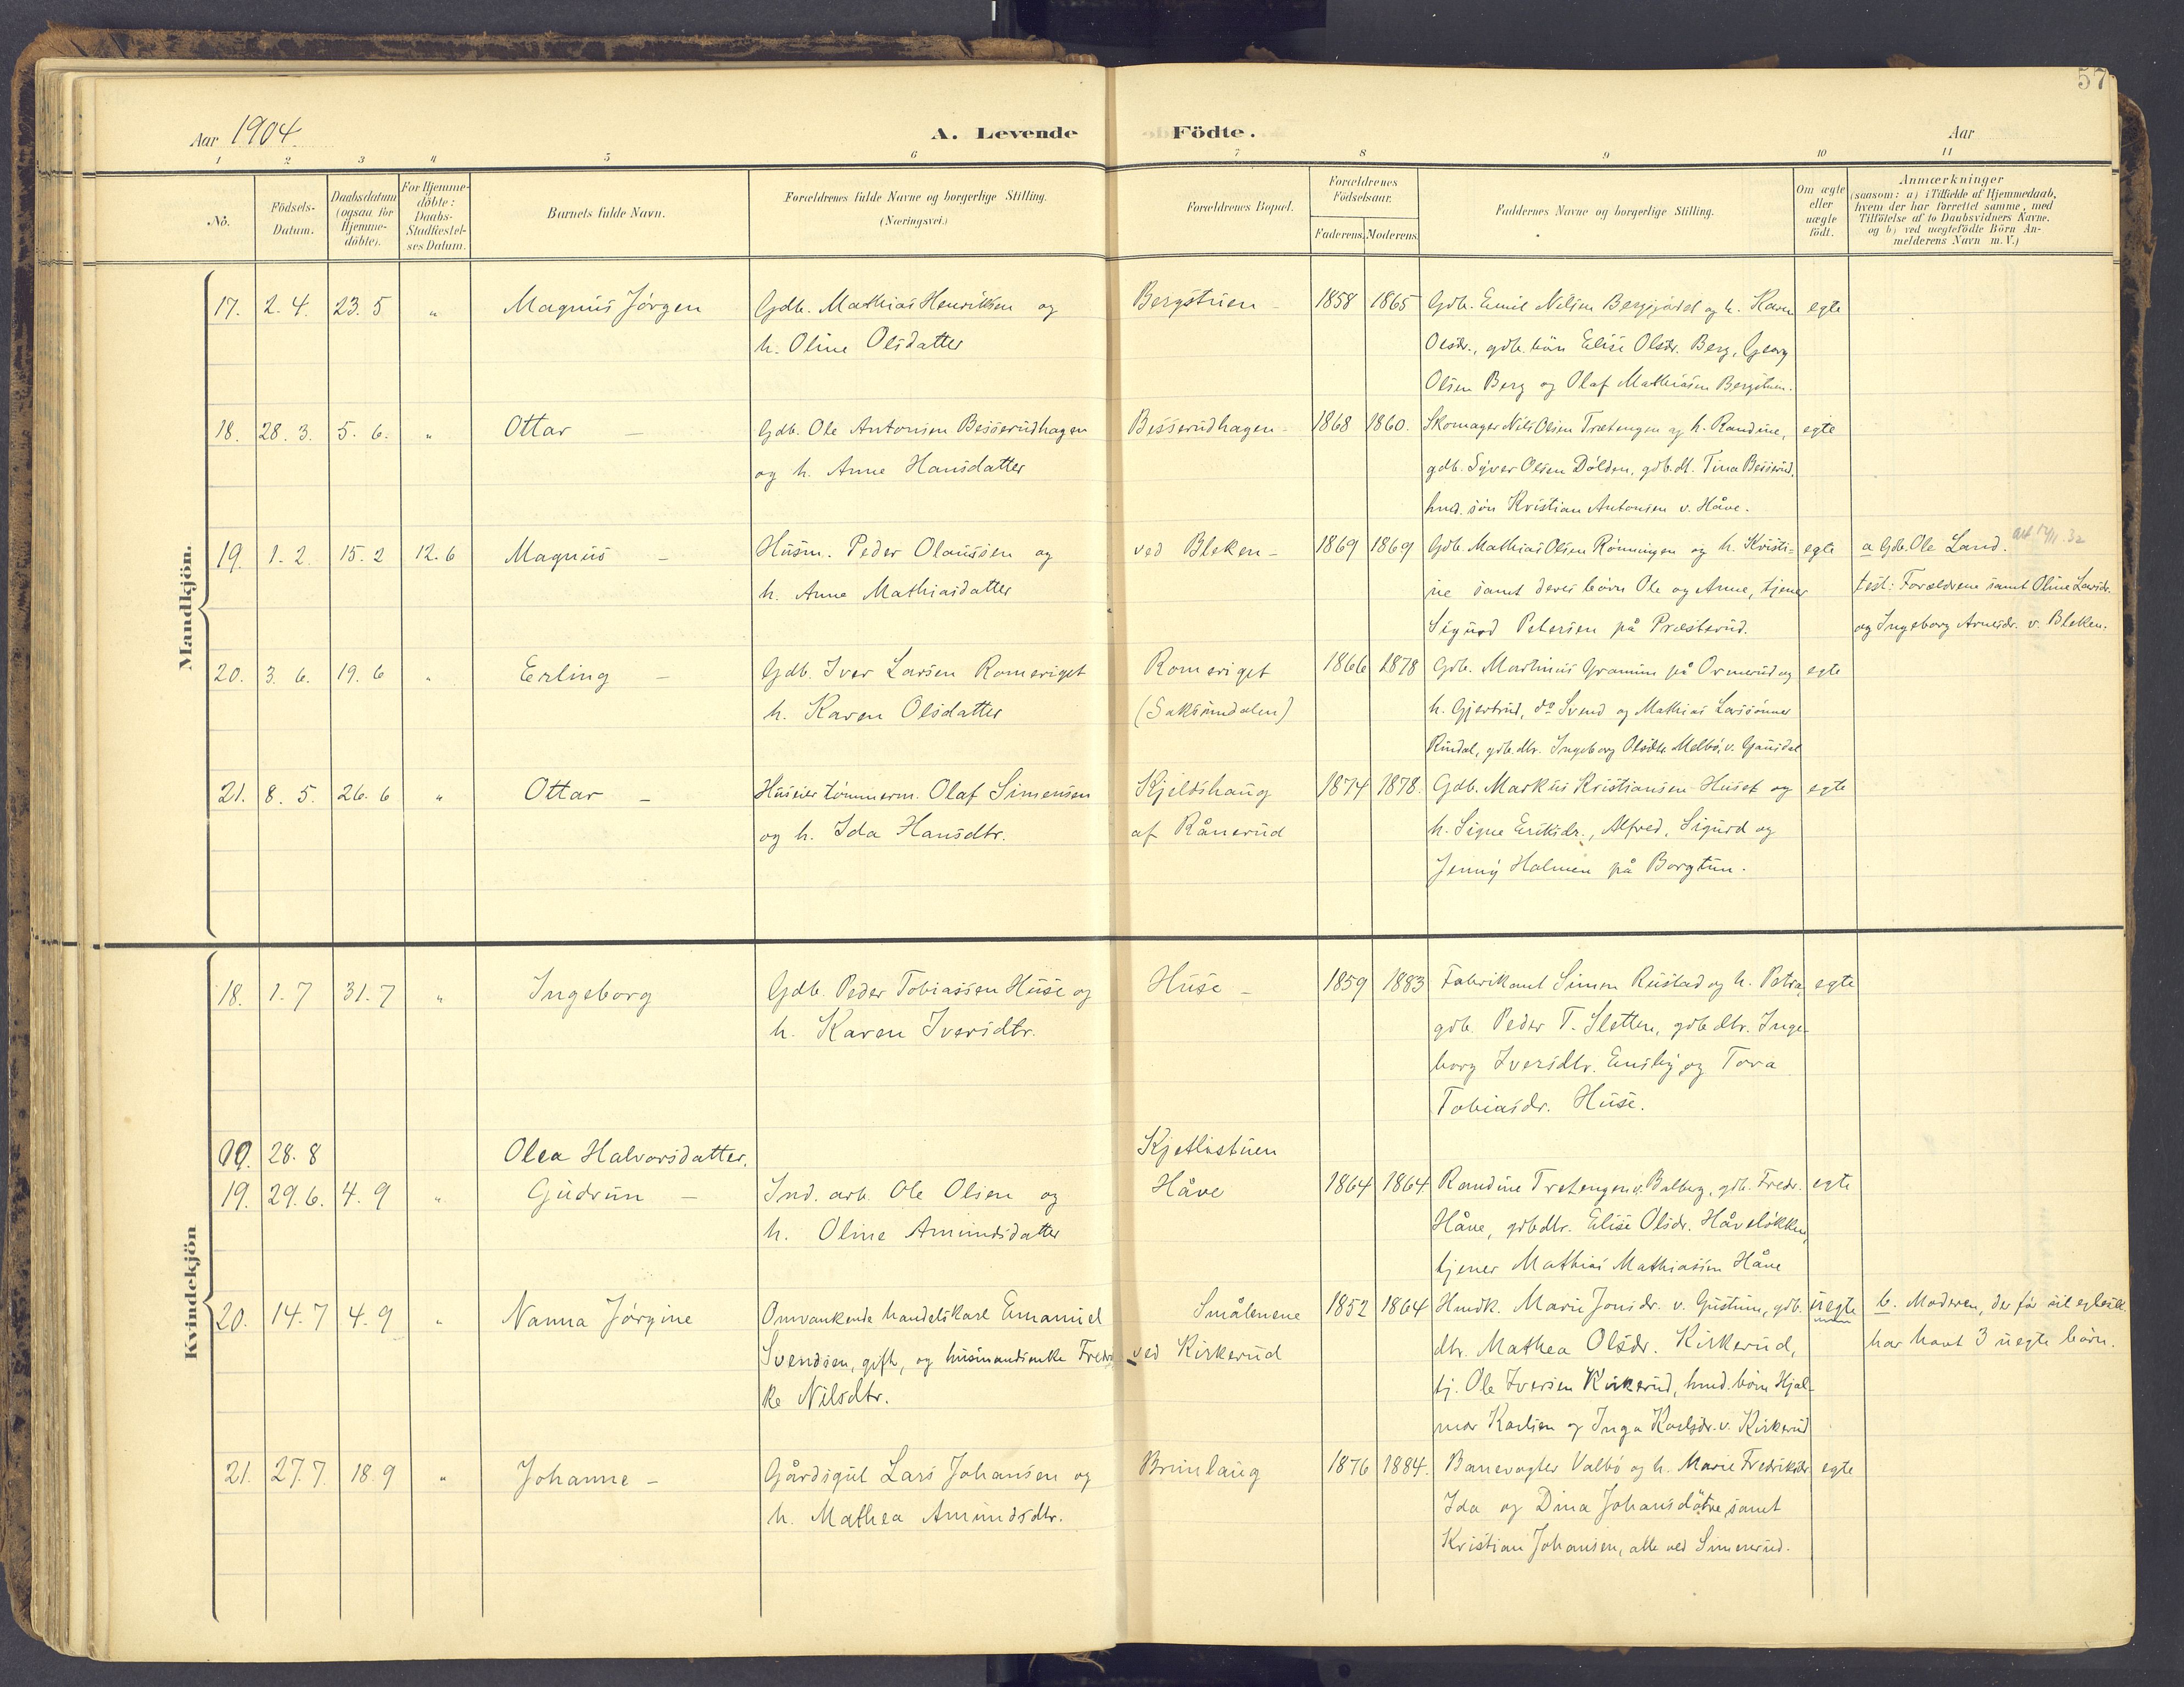 57
Aar 1904.
A. Levende Födte.
Aar
1 2 3 4 5 6 7 8 9 10 11
No.
Födsels-Datum.
Daabsdatum (ogsaa for Hjemme-döbte).
For Hjemme-döbte: Daabs-Stadfæstel-ses Datum.
Barnets fulde Navn.
Forældrenes fulde Navne og borgerlige Stilling.
(Næringsvei.)
Forældrenes Bopæl.
Forældrenes Födselsaar.
Faderens. Moderens.
Faddernes Navne og borgerlige Stilling.
Om ægte eller uægte födt.
Anmærkninger
(saasom: a) i Tilfælde af Hjemmedaab,
hvem der har forrettet samme, med
Tilföielse af to Daabsvidners Navne.
og b) ved uægtefödte Börn An-
melderens Navn m. V.)
Mandkjön.
17. 2. 4. 23. 5 " Magnus Jörgen Gdb. Mathias Henriksen og Bergstuen - 1858 1865 Gdb. Emil Nilsen Berggårdet og h. Karen egte
h. Oline Olsdatter Olsdr., gdb. börn Elise Olsdr. Berg, Georg
Olsen Berg og Olaf Mathiasen Bergstuen.
18. 28. 3. 5. 6. " Ottar - Gdb. Ole Antonsen Besserudhagen Besserudhagen - 1868 1860. Skomager Nils Olsen Trætengen og h. Randine, egte
og h. Anne Hansdatter gdb. Syver Olsen Dölden, gdb. dt. Tina Besserud,
hmd. sön Kristian Antonsen v. Håve.
19. 1. 2. 15. 2 12. 6 Magnus - Husm. Peder Olaussen og ved Bleken - 1869 1869 Gdb. Mathias Olsen Rönningen og h. Kristi- egte a Gdb. Ole Land.
h. Anne Mathiasdatter ne samt deres börn Ole og Anne, tjener test: Forældrene samt Oline Larsdr.
Sigurd Petersen på Præsterud. og Ingeborg Arnesdr. v. Bleken.
20. 3. 6. 19. 6 " Erling - Gdb. Iver Larsen Romeriget Romeriget 1866 1878 Gdb. Marthinus Gramm på Ormerud og egte
h. Karen Olsdatter (Saksumdalen) h. Gjertrud, do Svend og Mathias Larssönner
Rindal, gdb. dtr. Ingeborg Olsdtr. Melbö, v. Gausdal
21. 8. 5. 26. 6 " Ottar - Huseier tömmerm. Olaf Simensen Kjeldshaug 1874 1878. Gdb. Markus Kristiansen Huset og egte
og h. Ida Hansdtr. af Rånerud h. Signe Eriksdr., Alfred, Sigurd og
Jenny Holmen på Borgtun.
Kvindekjön
18. 1. 7 31. 7 " Ingeborg Gdb. Peder Tobiassen Huse og Huse - 1859 1883 Fabrikant Simen Rustad og h. Petra, egte
h. Karen Iversdtr. gdb. Peder T. Sletten, gdb dtr. Inge-
borg Iversdtr. Ensby og Tora
Tobiasdr. Huse.
28. 8 Olea Halvorsdatter. Kjetlistuen
19. 29. 6. 4. 9 " Gudrun - Ind. arb. Ole Olsen og Håve 1864 1864. Randine Tretengen v. Balberg, gdb. Fredr. egte
h. Oline Amundsdatter Håve, gdbdtr. Elise Olsdr. Håvelökken,
tjener Mathias Mathiassen Håve
20. 14. 7 4. 9 " Nanna Jörgine Omvankende handelskarl Emanuel Smålenene 1852 1864 Hmdk. Marie Jonsdr. v. Gustum, gdb. uegte b. Moderen, der før sit egtesk.
Svendsen, gift, og husmandsenke Fredri ved Kirkerud dtr. Mathea Olsdr. Kirkerud, har havt 3 uegte börn.
ke Nilsdtr. tj. Ole Iversen Kirkerud, hmd. börn Hjal-
mar Karlsen og Inga Karlsdr. v. Kirkerud
21. 27. 7. 18. 9 " Johanne - Gårdsgut Lars Johansen og Brunlaug 1876 1884. Banevogter Valbö og h. Marie Fredriksdr. egte
h. Mathea Amundsdtr. Ida og Dina Johansdøtre, samt
Kristian Johansen, alle ved Simenrud.